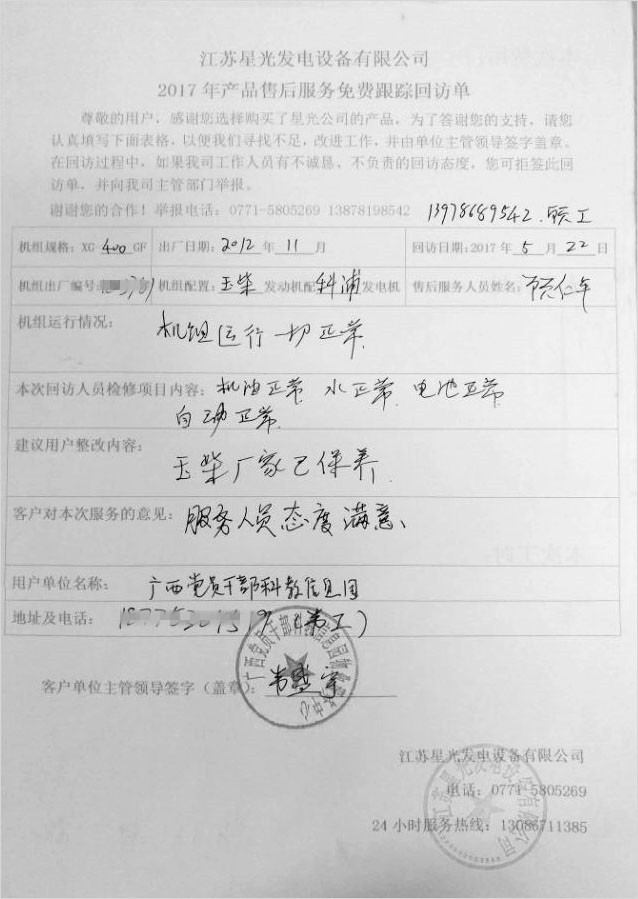 江苏星光发电设备有限公司
2017 年产品售后服务免费跟踪回访单
尊敬的用户，感谢您选择购买了星光公司的产品，为了答谢您的支持，请您
认真填写下面表格，以便我们寻找不足，改进工作，并由单位主管领导签字盖章。
在回访过程中，如果我司工作人员有不诚恳、不负责的回访态度，您可拒签此回
访单，并向我司主管部门举报。
谢谢您的合作！举报电话：0771-5805269 13878198542 13978689542
机组规格：XG-400GF 出厂日期：2012 年 11 月 回访日期：2017 年 5 月 22 日
机组出厂编号： 机组配置：玉柴 发动机配 科浦 发电机 售后服务人员姓名：
机组运行情况： 机组运行一切正常
本次回访人员检修项目内容：机油正常 水正常、电池正常
自动正常
建议用户整改内容：
玉柴厂家已保养
客户对本次服务的意见：服务人员态度满意、
用户单位名称： 广西党员干部科教信息园
地址及电话： (韦工)
客户单位主管领导签字（盖章）：
江苏星光发电设备有限公司
电话：0771-5805269
24 小时服务热线：13086711385
江苏星光发电设备有限公司